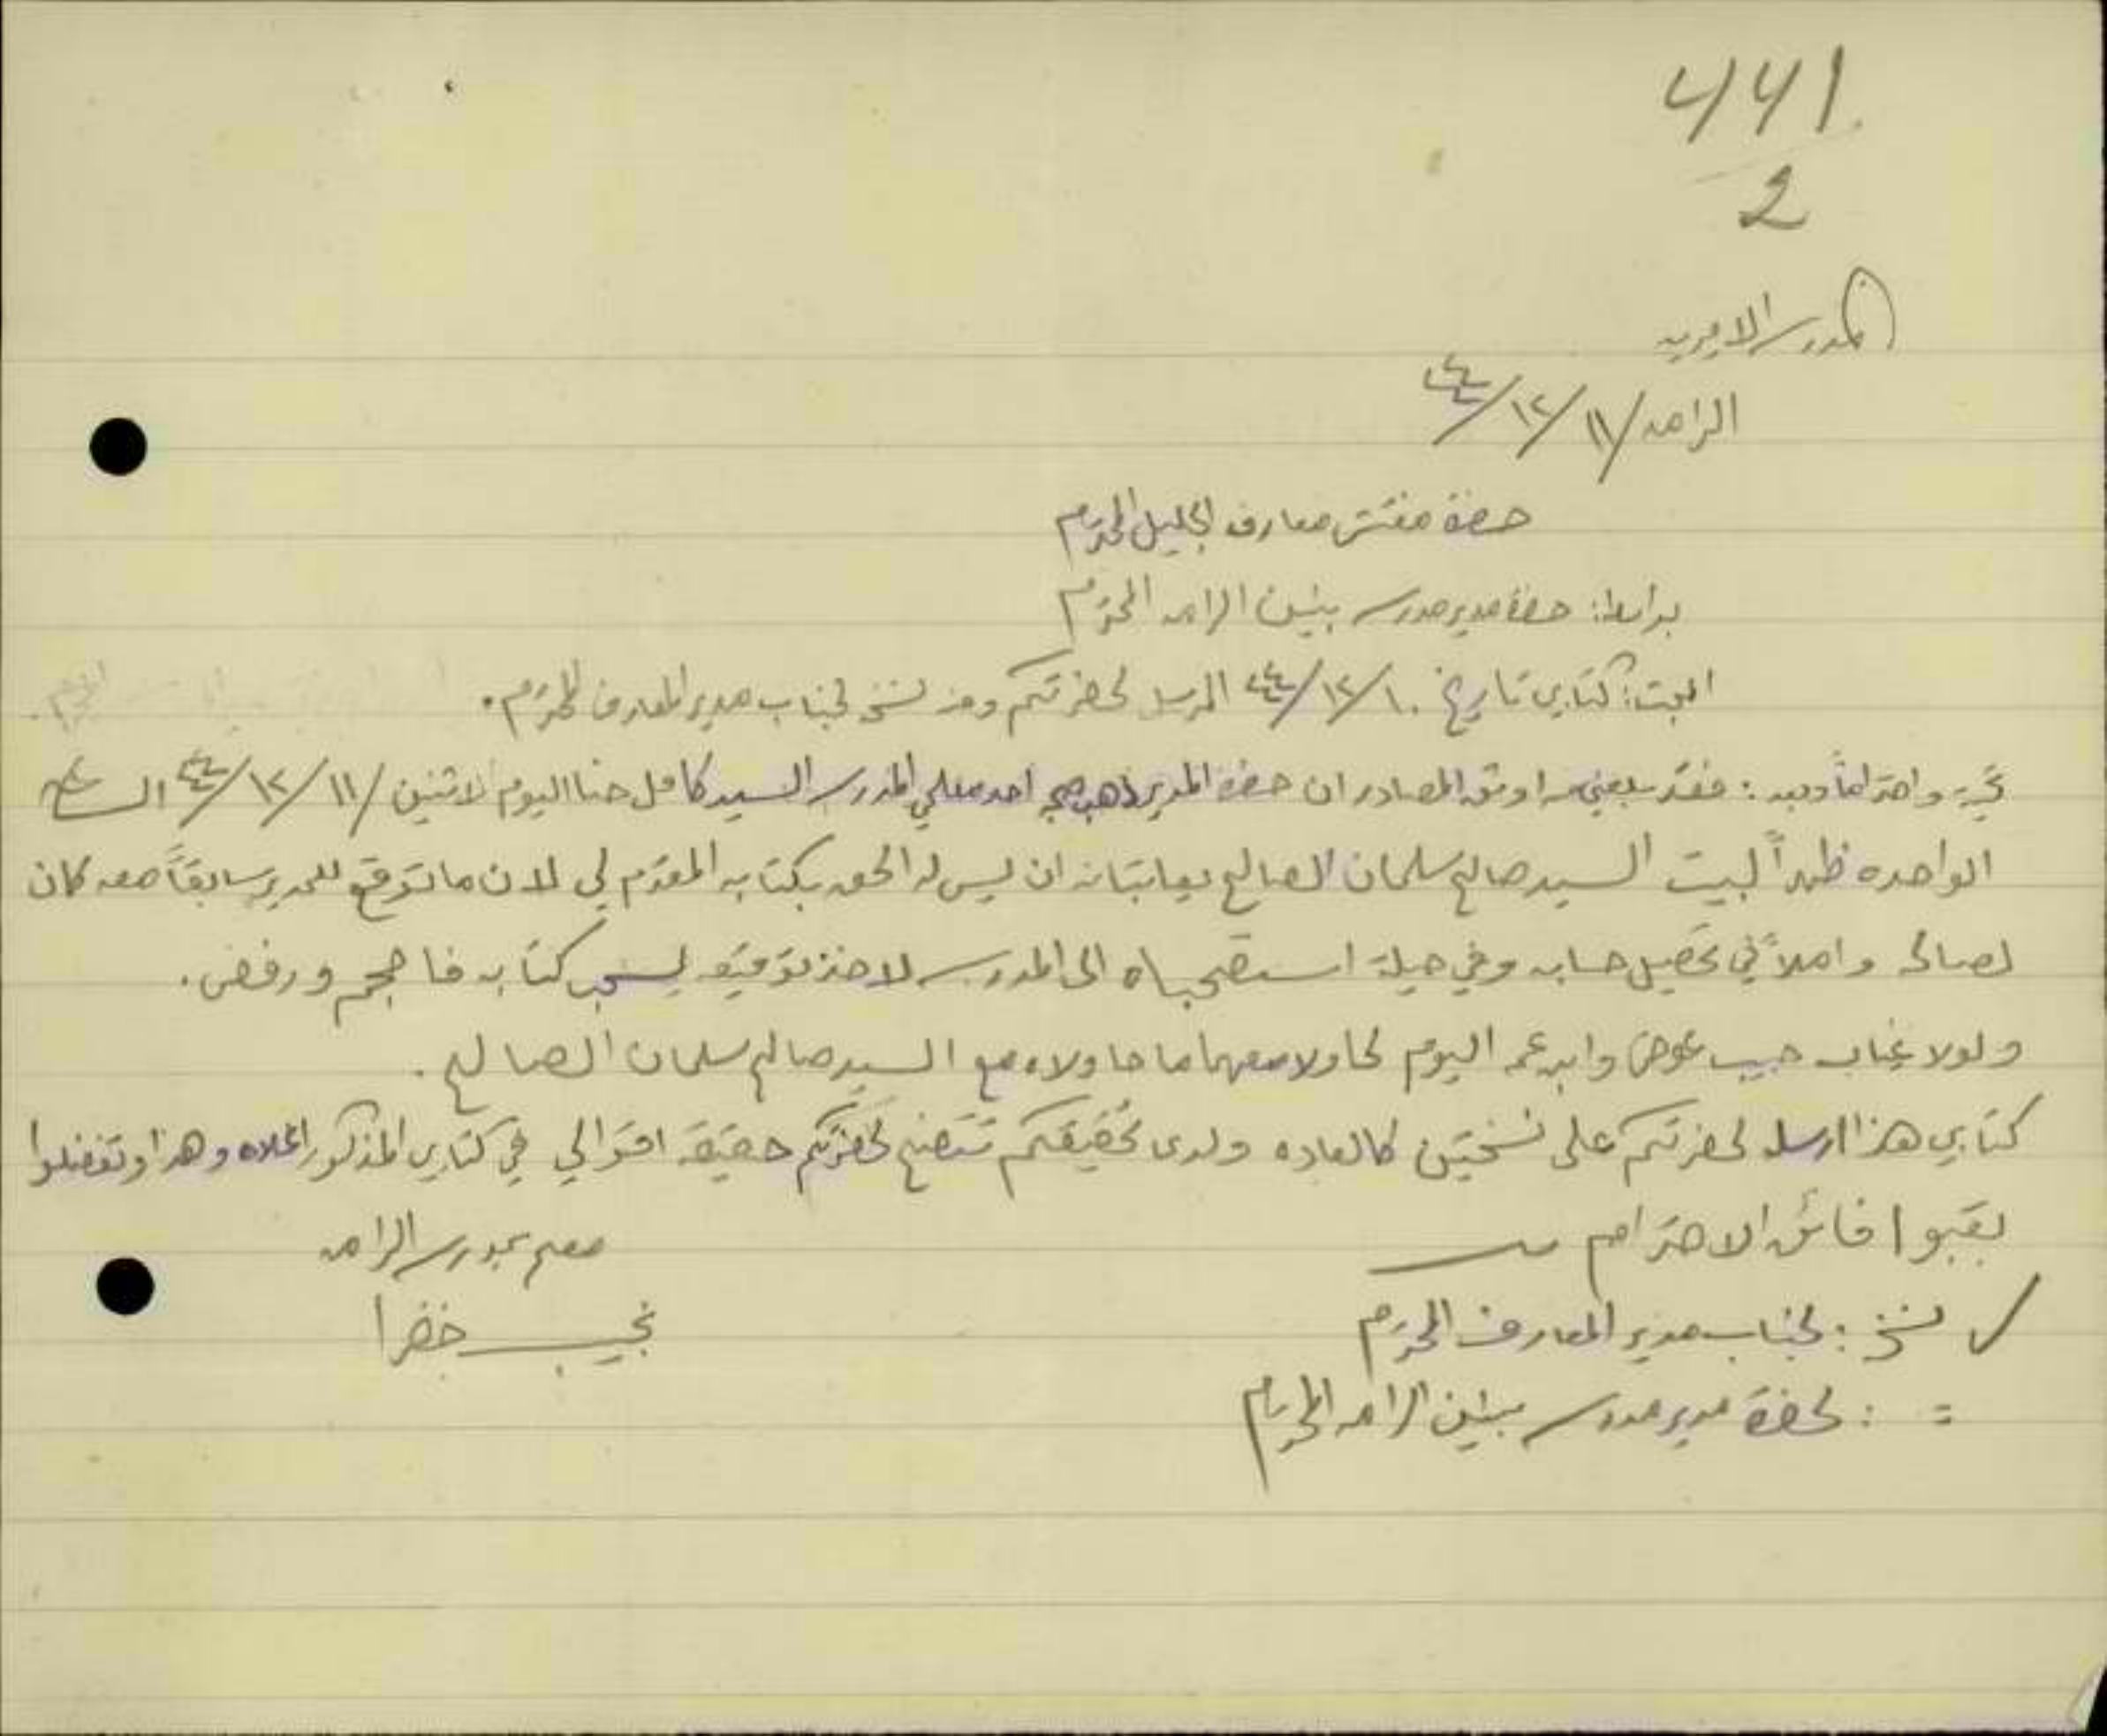 441
2
المدرسة الاميرية
الرامه ١١/١٢/٤٤
حضرة مفتش معارف الجليل المحترم
بواسطة: حضرة مدير مدرسة بنين الرامه المحترم
البحث: كتابي تاريخ ١٠/١٢/٤٤ المرسل لحضرتكم ومنه نسخه لجناب مدير المعارف المحترم.
تحية واحتراماً وبعد: فقد بلغني من اوثق المصادر ان حضرة المدير ذهب مع احد معلمي المدرسة السيد كامل حنا اليوم الاثنين ١١/١٢/٤٤ الساعة
الواحده ظهراً لبيت السيد صالح سلمان الصالح يعاتبانه ان ليس له الحق بكتابه المقدم لي لان ما توقع للمدير سابقاً معه كان
لصالحه واملاً في تحصيل حسابه وفي حيلة استصحباه الى المدرسة لاخذ توقيعه لسحب كتابه فاحجم ورفض.
ولولا غياب حبيب عوض وابن عمه اليوم لحاولا معهما ما حاولاه مع السيد صالح سلمان الصالح.
كتابي هذا ارسله لحضرتكم على نسختين كالعاده ولدى تحقيقكم تتضح لحضرتكم حقيقة اقوالي في كتابي المذكور اعلاه وهذا وتفضلوا
بقبول فائق الاحترام
معلم بمدرسة الرامه
نجيب خضرا
✓ نسخه: لجناب مدير المعارف المحترم
= : لحضرة مدير مدرسة بنين الرامه المحترم